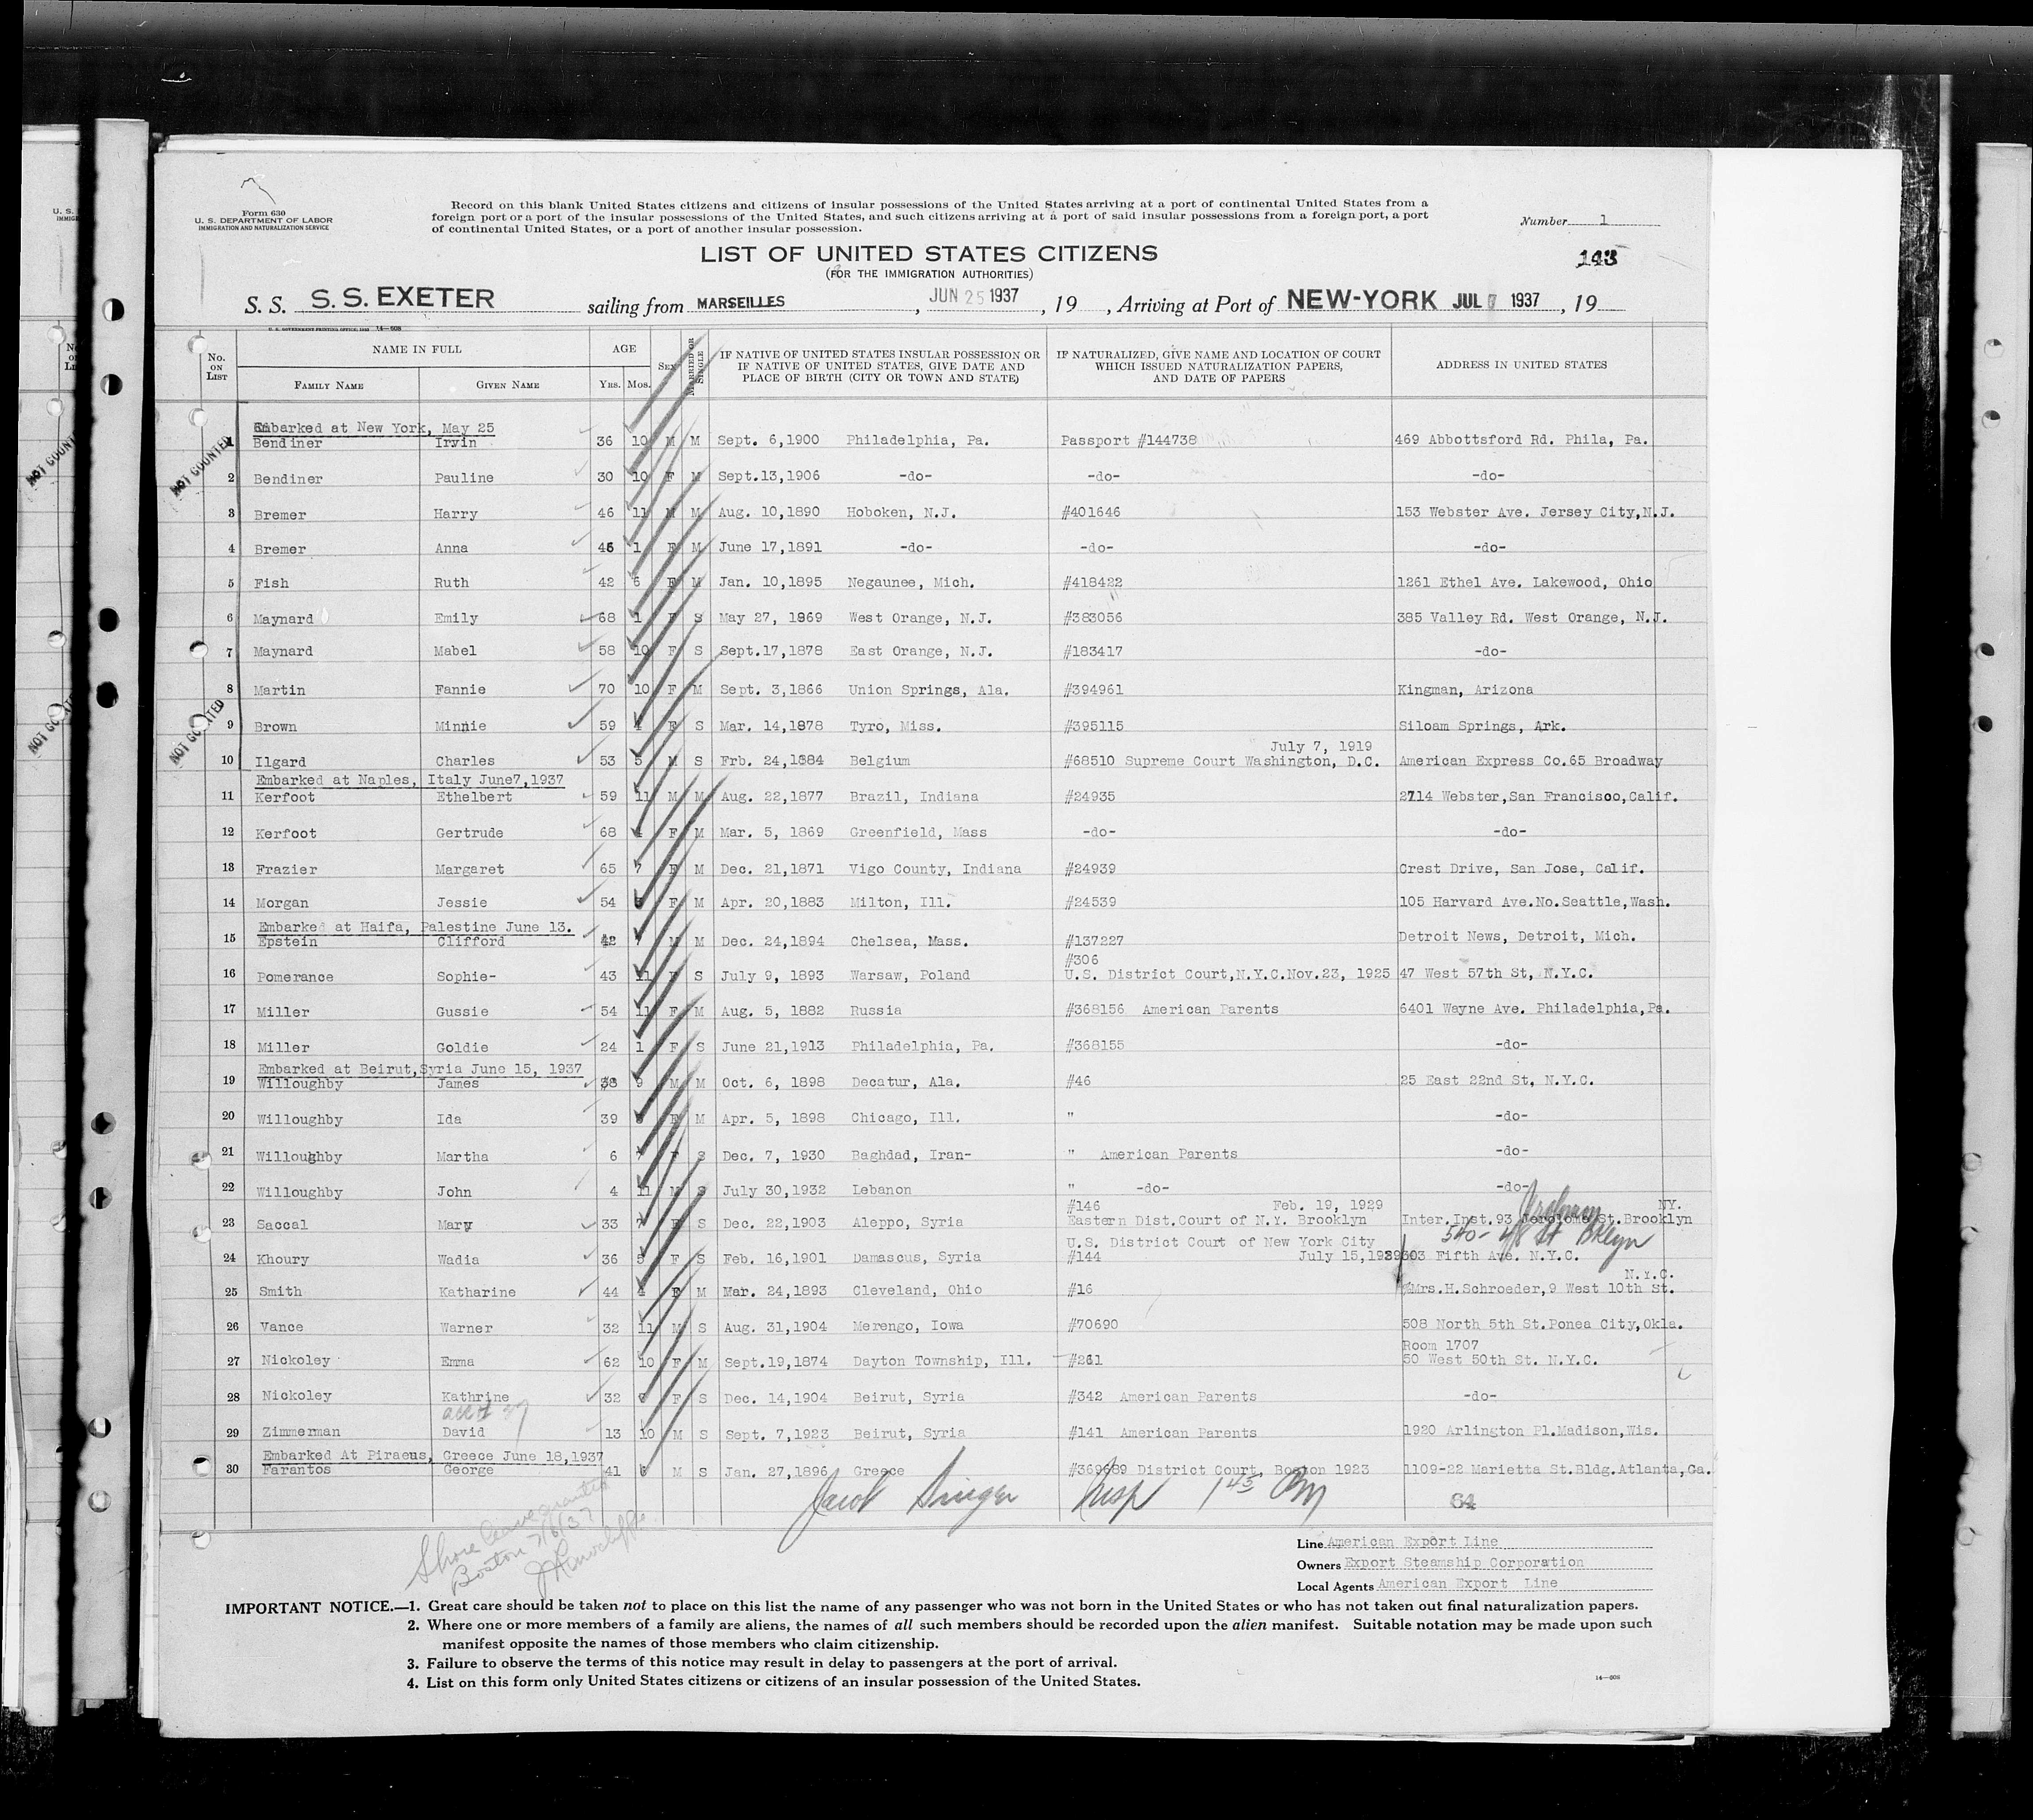 Form 630
U. S. DEPARTMENT OF LABOR
IMMIGRATION AND NATURALIZATION SERVICE
Record on this blank United States citizens and citizens of insular possessions of the United States arriving at a port of continental United States from a
foreign port or a port of the insular possessions of the United States, and such citizens arriving at a port of said insular possessions from a foreign port, a port
of continental United States, or a port of another insular possession.
Number 1
LIST OF UNITED STATES CITIZENS
(FOR THE IMMIGRATION AUTHORITIES)
143
S. S. S. S. EXETER sailing from MARSEILLES , JUN 25 1937 , 19 , Arriving at Port of NEW-YORK JUL 7 1937 , 19
No. on List NAME IN FULL AGE Sex Married or Single IF NATIVE OF UNITED STATES INSULAR POSSESSION OR IF NATIVE OF UNITED STATES, GIVE DATE AND PLACE OF BIRTH (CITY OR TOWN AND STATE) IF NATURALIZED, GIVE NAME AND LOCATION OF COURT WHICH ISSUED NATURALIZATION PAPERS, AND DATE OF PAPERS ADDRESS IN UNITED STATES
Family Name Given Name Yrs. Mos.
Embarked at New York, May 25
1 Bendiner Irvin 36 10 M M Sept. 6,1900 Philadelphia, Pa. Passport #144738 469 Abbottsford Rd. Phila, Pa.
NOT COUNTED
2 Bendiner Pauline 30 10 F M Sept.13,1906 -do- -do- -do-
3 Bremer Harry 46 11 M M Aug. 10,1890 Hoboken, N.J. #401646 153 Webster Ave. Jersey City,N.J.
4 Bremer Anna 46 1 F M June 17,1891 -do- -do- -do-
5 Fish Ruth 42 5 F M Jan. 10,1895 Negaunee, Mich. #418422 1261 Ethel Ave. Lakewood, Ohio
6 Maynard Emily 68 1 F S May 27, 1869 West Orange, N.J. #383056 385 Valley Rd. West Orange, N.J.
7 Maynard Mabel 58 10 F S Sept.17,1878 East Orange, N.J. #183417 -do-
8 Martin Fannie 70 10 F M Sept. 3,1866 Union Springs, Ala. #394961 Kingman, Arizona
NOT COUNTED
9 Brown Minnie 59 4 F S Mar. 14,1878 Tyro, Miss. #395115 Siloam Springs, Ark.
July 7, 1919
10 Ilgard Charles 53 5 M S Frb. 24,1884 Belgium #68510 Supreme Court Washington, D.C. American Express Co.65 Broadway
Embarked at Naples, Italy June7,1937
11 Kerfoot Ethelbert 59 11 M M Aug. 22,1877 Brazil, Indiana #24935 2714 Webster,San Francisco,Calif.
12 Kerfoot Gertrude 68 4 F M Mar. 5, 1869 Greenfield, Mass -do- -do-
13 Frazier Margaret 65 7 F M Dec. 21,1871 Vigo County, Indiana #24939 Crest Drive, San Jose, Calif.
14 Morgan Jessie 54 F M Apr. 20,1883 Milton, Ill. #24539 105 Harvard Ave.No.Seattle,Wash.
Embarked at Haifa, Palestine June 13.
15 Epstein Clifford 42 7 M M Dec. 24,1894 Chelsea, Mass. #137227 Detroit News, Detroit, Mich.
#306
16 Pomerance Sophie- 43 11 F S July 9, 1893 Warsaw, Poland U.S. District Court,N.Y.C.Nov.23, 1925 47 West 57th St, N.Y.C.
17 Miller Gussie 54 11 F M Aug. 5, 1882 Russia #368156 American Parents 6401 Wayne Ave. Philadelphia,Pa.
18 Miller Goldie 24 1 F S June 21,1913 Philadelphia, Pa. #368155 -do-
Embarked at Beirut,Syria June 15, 1937
19 Willoughby James 38 9 M M Oct. 6, 1898 Decatur, Ala. #46 25 East 22nd St, N.Y.C.
20 Willoughby Ida 39 F M Apr. 5, 1898 Chicago, Ill. " -do-
21 Willoughby Martha 6 7 F S Dec. 7, 1930 Baghdad, Iran- " American Parents -do-
22 Willoughby John 4 11 M S July 30,1932 Lebanon " -do- -do-
#146 Feb. 19, 1929 NY.
23 Saccal Mary 33 7 F S Dec. 22,1903 Aleppo, Syria Eastern Dist.Court of N.Y. Brooklyn Inter.Inst.93 St.Brooklyn
540- 48 St Bklyn
U.S. District Court of New York City
24 Khoury Wadia 36 5 F S Feb. 16,1901 Damascus, Syria #144 July 15,1929 503 Fifth Ave. N.Y.C.
N.Y.C.
25 Smith Katharine 44 4 F M Mar. 24,1893 Cleveland, Ohio #16 Mrs.H.Schroeder,9 West 10th St.
26 Vance Warner 32 11 M S Aug. 31,1904 Merengo, Iowa #70690 508 North 5th St.Ponea City,Okla.
Room 1707
27 Nickoley Emma 62 10 F M Sept.19,1874 Dayton Township, Ill. #261 50 West 50th St. N.Y.C.
28 Nickoley Kathrine 32 6 F S Dec. 14,1904 Beirut, Syria #342 American Parents -do-
acc# 27
29 Zimmerman David 13 10 M S Sept. 7,1923 Beirut, Syria #141 American Parents 1920 Arlington Pl.Madison,Wis.
Embarked At Piraeus, Greece June 18,1937
30 Farantos George 41 6 M S Jan. 27,1896 Greece #369689 District Court, Boston 1923 1109-22 Marietta St.Bldg.Atlanta,Ga.
Jacob Singer Insp 1 45 PM 64
Shore leave granted
Boston 7/6/37
Line American Export Line
Owners Export Steamship Corporation
Local Agents American Export Line
IMPORTANT NOTICE.—1. Great care should be taken not to place on this list the name of any passenger who was not born in the United States or who has not taken out final naturalization papers.
2. Where one or more members of a family are aliens, the names of all such members should be recorded upon the alien manifest. Suitable notation may be made upon such
manifest opposite the names of those members who claim citizenship.
3. Failure to observe the terms of this notice may result in delay to passengers at the port of arrival.
4. List on this form only United States citizens or citizens of an insular possession of the United States.